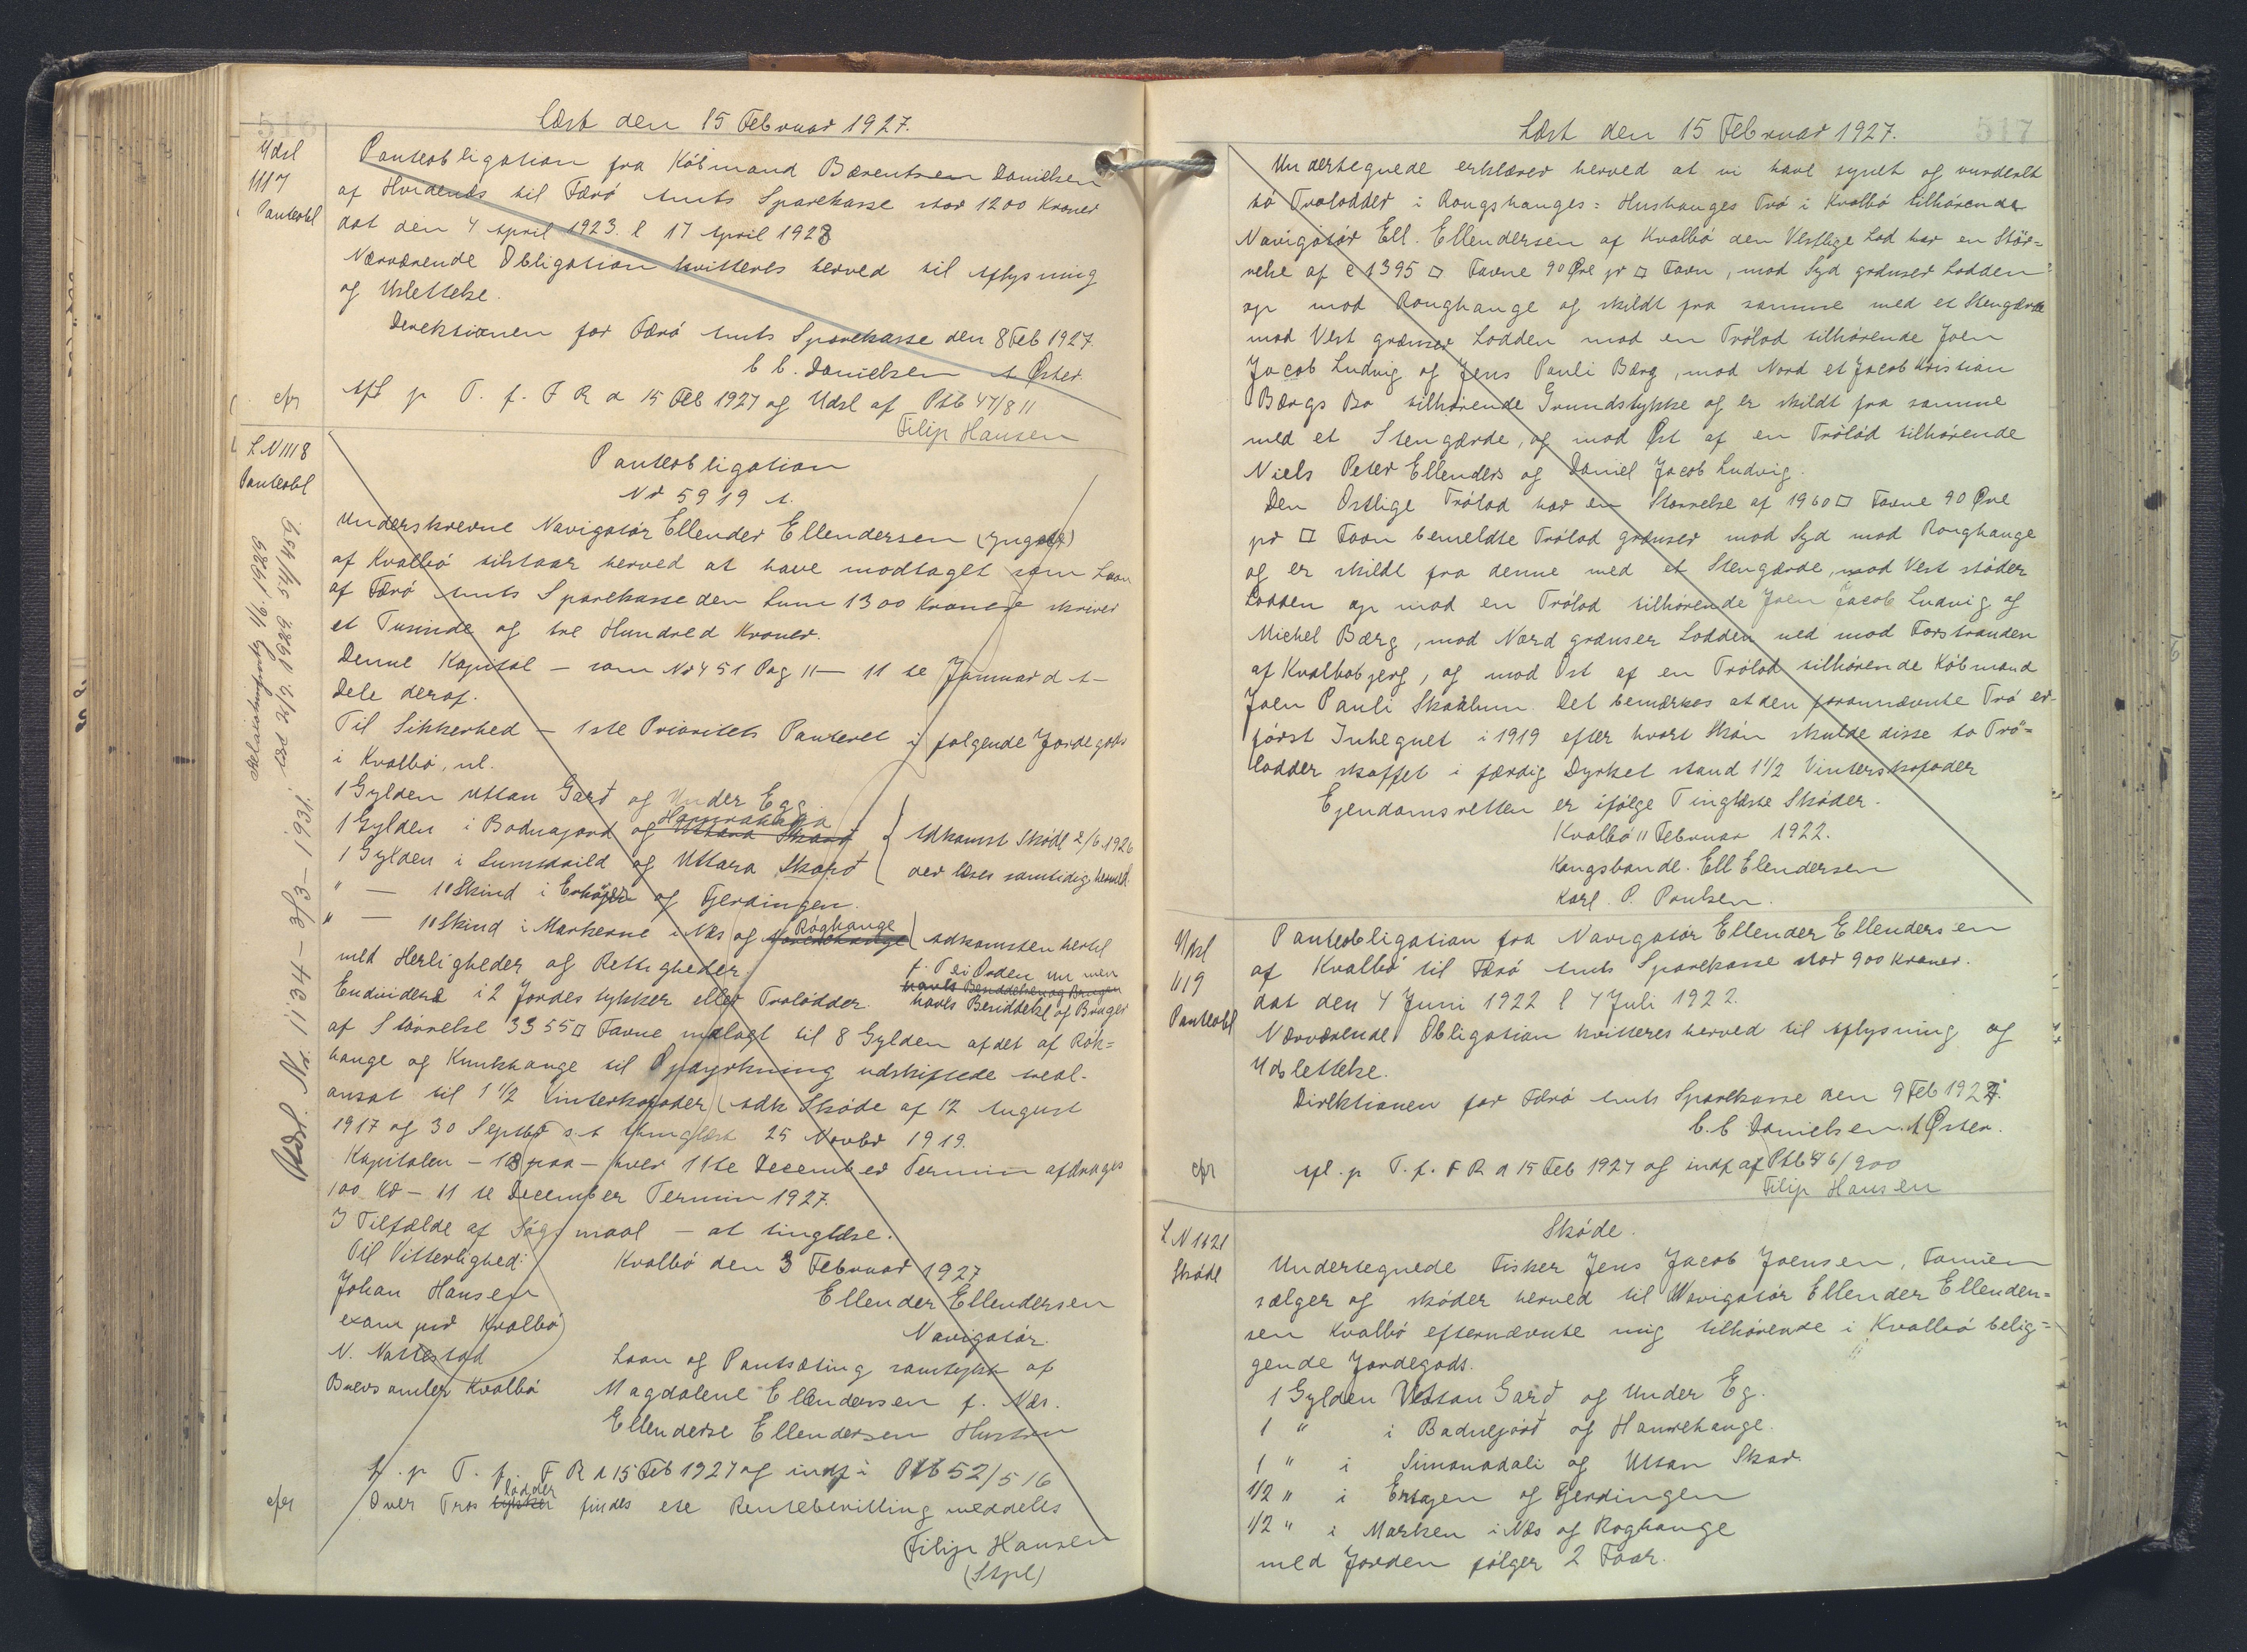 516
Læst den 15 Februar 1927.
Udsl
1117
Panteobl
Panteobligation fra Köbmand Bærentsen Danielsen
af Hvidenæs til Færö Amts Sparekasse stor 1200 Kroner
dat den 4 April 1923. l 17 April 1923
Nærværende Obligation kvitteres herved til Aflysning
og Udslettelse.
Direktionen for Færö Amts Sparekasse den 8 Feb 1927.
C C. Danielsen A Øster.
cfr
Afl p T. f. F R d 15 Feb 1927 og Udsl af Ptb 47/811
Filip Hansen
L.N 1118
Panteobl
Panteobligation
Nr 5919 A.
Underskrevne Navigatör Ellender Ellendersen (yngste)
af Kvalbö tilstaar herved at have modtaget som Laan
af Færö Amts Sparekasse den Sum 1300 Kroner skriver
et Tusinde og tre Hundred Kroner.
Denne Kapital – som Nr 451 Pag 11 – 11 te Januar d A –
dele deraf.
Til Sikkerhed – 1ste Prioritets Panteret i følgende Jordegods
i Kvalbö, nl.
1 Gylden Uttan Gard og Under Egg.
1 Gylden i Bodnajord og Uttara Skard Hamrahaga
1 Gylden i Sumsdrild og Uttara Skard
Adkomst Skøde 2/6 1926
der læses samtidig hermed
" — 10 Skind i Enhøjen og Gerdingen.
" — 10 Skind i Markerne i Næs og Røghange
Adkomsten hertil
f. T ei i Orden nu men
havls Besiddelsen og Brugen
havls Besiddelse og Bruger
med Herligheder og Rettigheder.
Endvidere i 2 Jordestykker eller Trølodder.
af Størrelse 3355 □ Favne udlagt til 8 Gylden af det af Rök=
hange og Knukhange til Opdyrkning udskiftede Areal.
ansat til 1 1/2 Vinterkofoder (Adk Skøde af 12 August
1917 og 30 Septbr s. A tinglæst 25 Novbr 1919.
Kapitalen – 18 paa – hver 11te December Termin afdrages
100 Kr – 11 te December Termin 1927.
I Tilfælde af Søgsmaal – at tinglæse.
Til Vitterlighed:
Kvalbö den 3 Februar 1927
Johan Hansen
Ellender Ellendersen
exam jur Kvalbö
Navigatör.
N. Nattestad
Laan og Pantsæting samtykt af
Brevsamler Kvalbö
Magdalene Ellendersen f. Næs.
Ellenderse Ellendersen Hustru
L. p T. f. F R d 15 Feb 1927 og indf i Ptb 52/516
cfr
Over Trøs stykker lodder findes ete Rentebevilling meddelts
Filip Hansen
(Stpl)
Udsl. Nr. 1134 – 3/3 – 1931.
517
Læst den 15 Februar 1927.
Undertegnede erklærer herved at vi have synet og vurderet
to Trolodder i Rongshanges = Hushanges Trö i Kvalbö tilhørende
Navigatör Ell. Ellendersen af Kvalbö den Vestlige Lod har en Stör=
relse af c 1395 □ Favne 90 Øre pr □ Favn, mod Syd grænser Lodden
op mod Ronghange og skildt fra samme med et Stengærde
mod Vest grænser Lodden mod en Trölod tilhørende Joen
Jacob Ludvig og Jens Pauli Bærg, mod Nord et Jacob Kristian
Bærgs Bo tilhørende Grundstykke og er skildt fra samme
med et Stengærde, og mod Øst af en Trölod tilhørende
Niels Peter Ellenders og Daniel Jacob Ludvig.
Den Østlige Trölod har en Størrelse af 1960 □ Favne 90 Øre
pr □ Favn bemeldte Trölod grænser mod Syd mod Ronghange
og er skildt fra denne med et Stengærde, mod Vest støder
Lodden op mod en Trölod tilhørende Joen Jacob Ludvig og
Michel Bærg, mod Nord grænser Lodden ned mod Forstranden
af Kvalbobjerg, og mod Öst af en Trölod tilhørende Köbmand
Joen Pauli Skaalum. Det bemærkes at den forannævnte Trö er
först Inhegnet i 1919 efter hvort Skön skulde disse to Trö=
lodder skaffet i færdig Dyrket stand 1 1/2 Vinterskofoder
Ejendomsretten er ifølge Tinglæste Skøder.
Kvalbö 11 Februar 1922.
Kongsbonde. Ell Elendersen
Karl. P. Poulsen.
Udsl
1119
Panteobl
Panteobligation fra Navigatör Ellender Ellendersen
af Kvalbö til Færö Amts Sparekasse stor 900 Kroner.
dat den 4 Juni 1922 l 4 Juli 1922.
Nærværende Obligation kvitteres herved til Aflysning og
Udslettelse.
Direktionen for Færö Amts Sparekasse den 9 Feb 1927.
C. C Danielsen. A Øster.
cfr
Afl. p T. f. F R d 15 Feb 1927 og indf af Ptb 46/900
Filip Hansen
L. N 1121
Skøde
Skøde.
Undertegnede Fisker Jens Jacob Joensen, Famien
sælger og skøder herved til Navigatör Ellender Ellender=
sen Kvalbö efternævnte mig tilhørende i Kvalbö belig=
gende Jordegods.
1 Gylden Uttan Gard og Under Eg.
1 " i Badnejörd og Hamrehange.
1 " i Simanadali og Uttan Skar.
1/2 " i Entøyen og Gerdingen
1/2 " i Marken i Næs og Roghange
med Jorden følger 2 Faar.